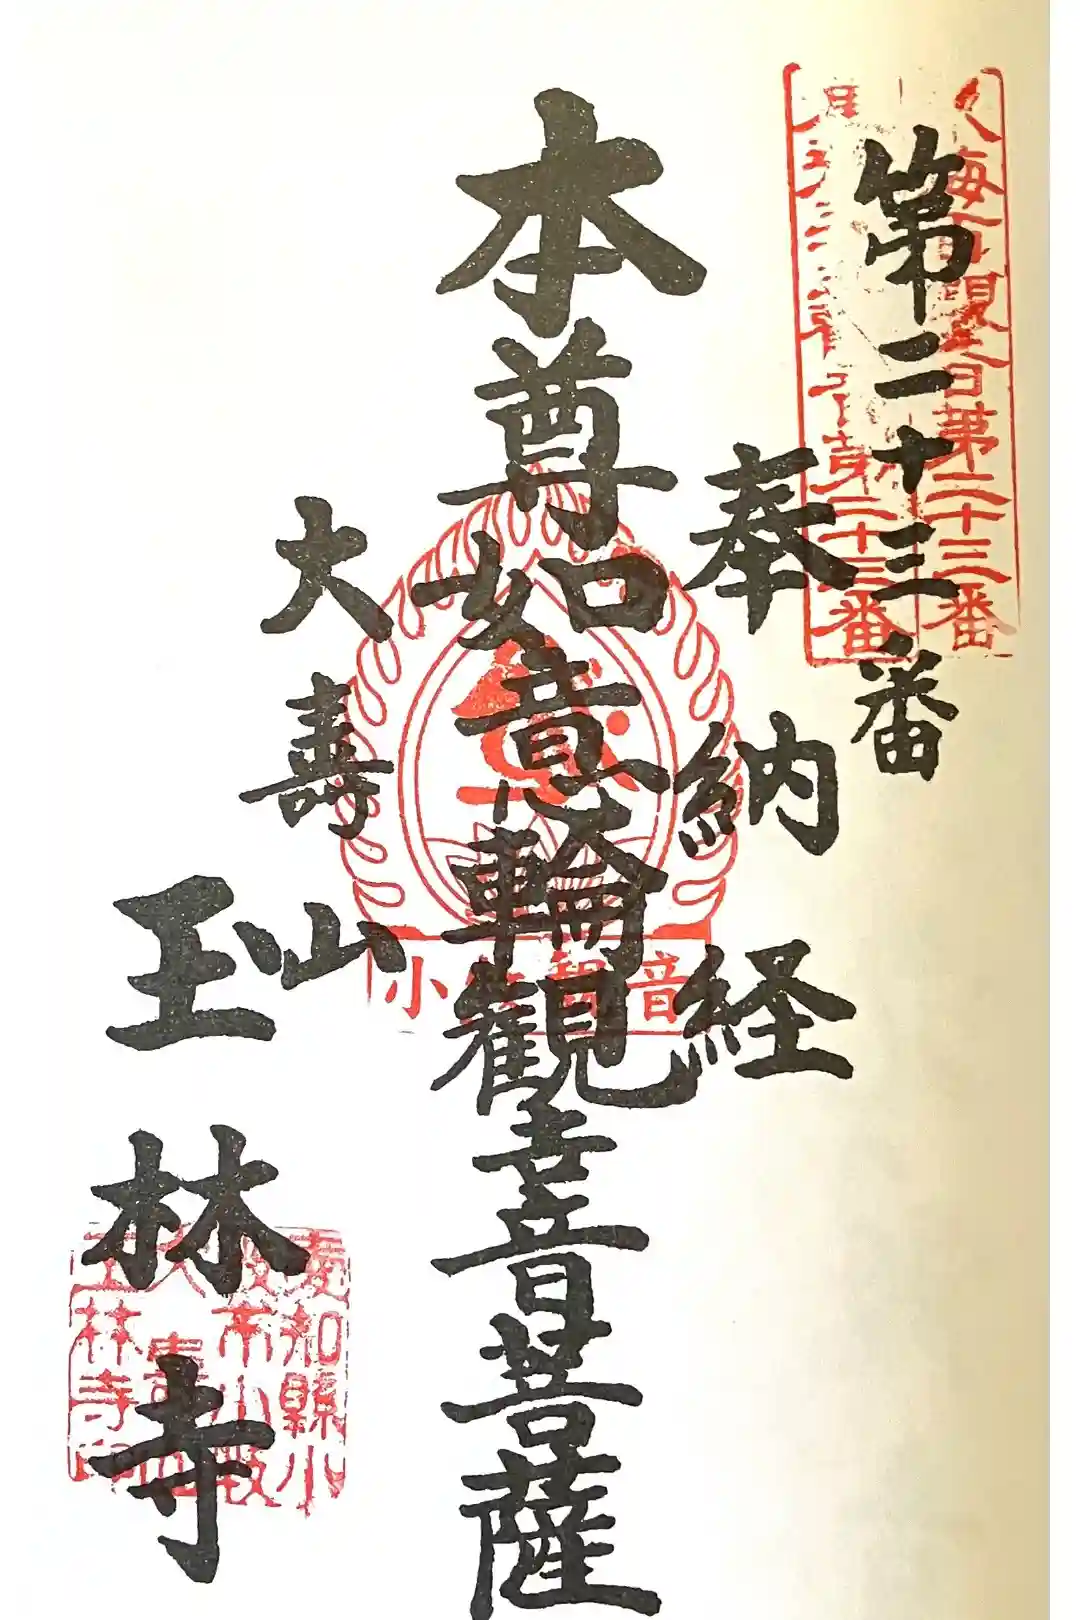 第二十三番
奉納経
本尊如意輪観世音菩薩
大壽山
玉林寺
東海百観音第二十三番
第二十三番
小牧観音
愛知縣小
牧市小牧
大壽山
玉林寺印